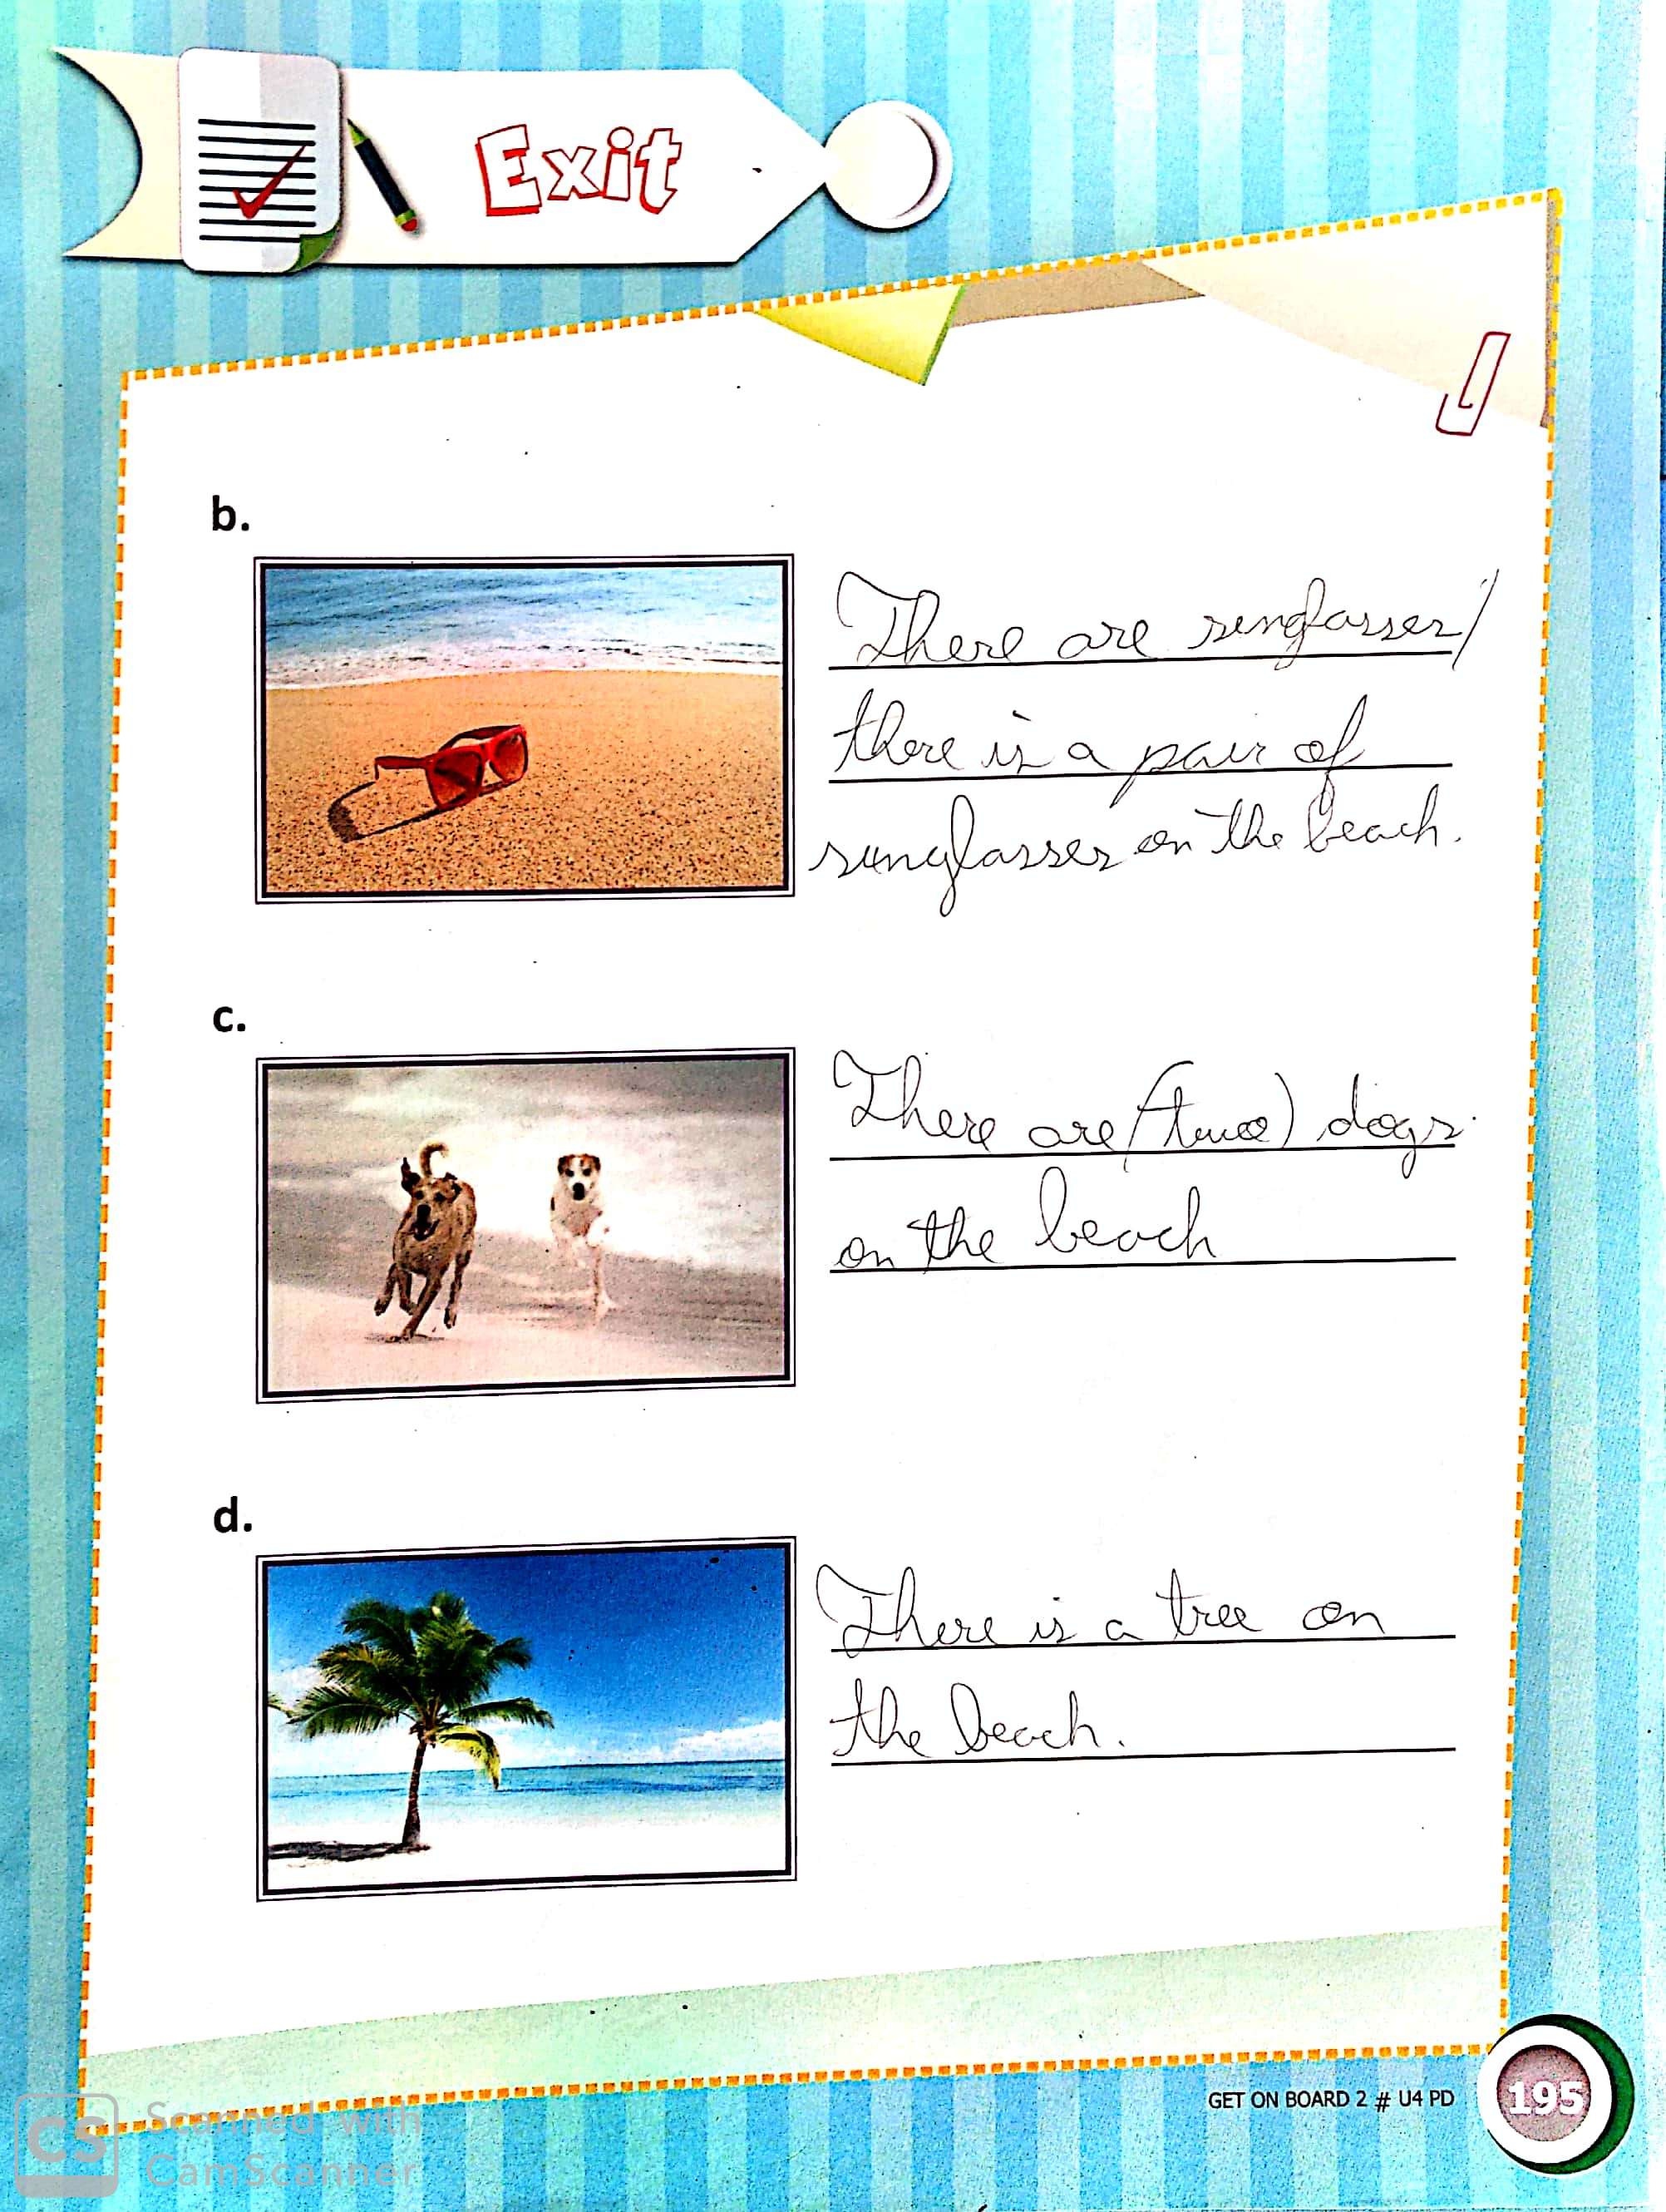 Exit
b.
There are sunglasses/
there is a pair of
sunglasses on the beach.
c.
There are (two) dogs
on the beach
d.
There is a tree on
the beach.
GET ON BOARD 2 # U4 PD
195
CS Scanned with
CamScanner